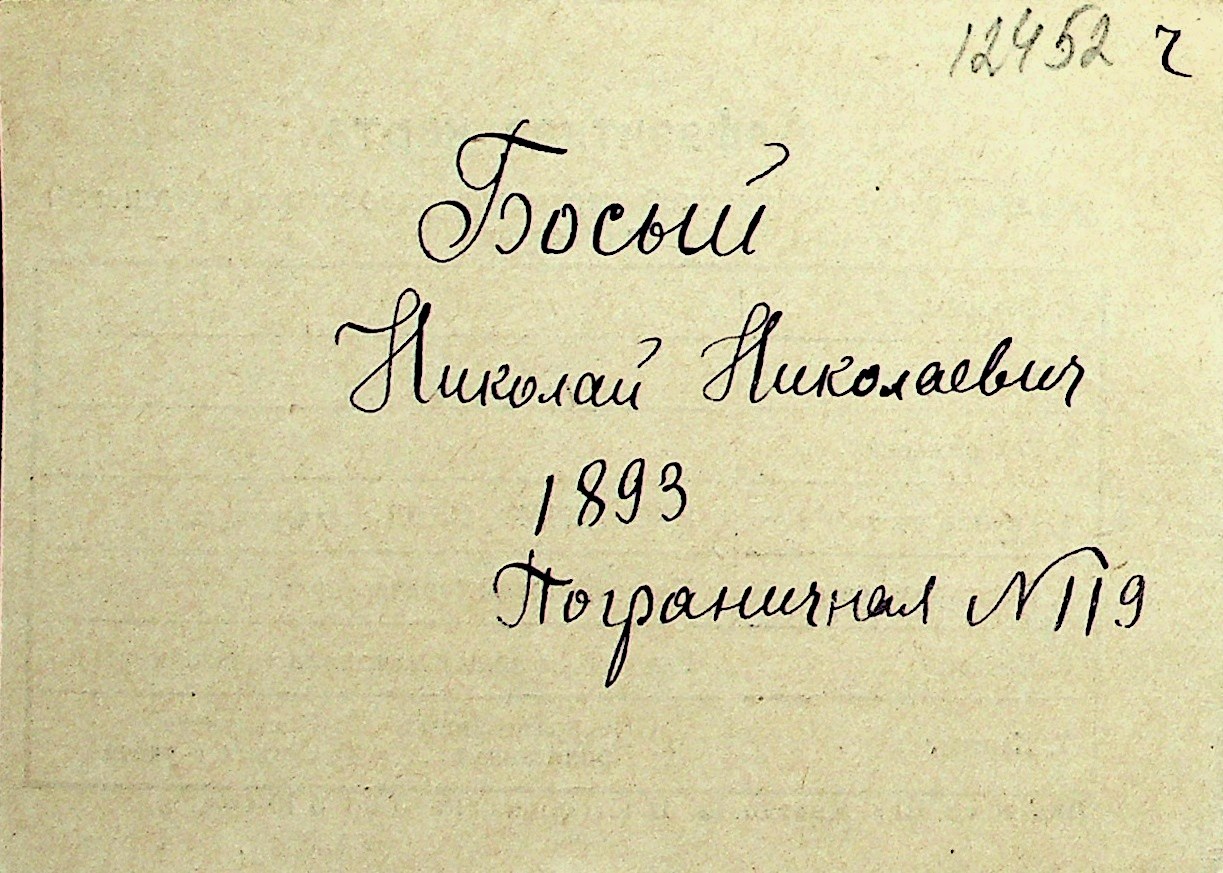 12452 ч
Босый
Николай Николаевич
1893
Пограничная №119